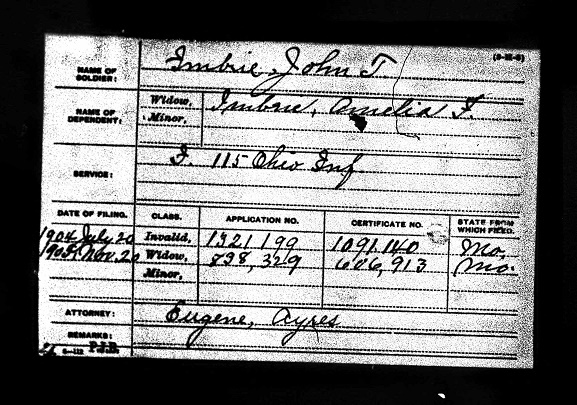 (3-II-5)
NAME OF SOLDIER: Imbrie, John T.
NAME OF DEPENDENT: Widow, Imbrie, Amelia F.
Minor,
SERVICE: F. 115 Ohio Inf
DATE OF FILING. CLASS. APPLICATION NO. CERTIFICATE NO. STATE FROM WHICH FILED.
1904 July 20 Invalid, 1321,199 1091,140 Mo.
1905 Nov. 20 Widow, 838,329 606,913 Mo.
Minor,
ATTORNEY: Eugene, Ayres
REMARKS:
P.J.B.